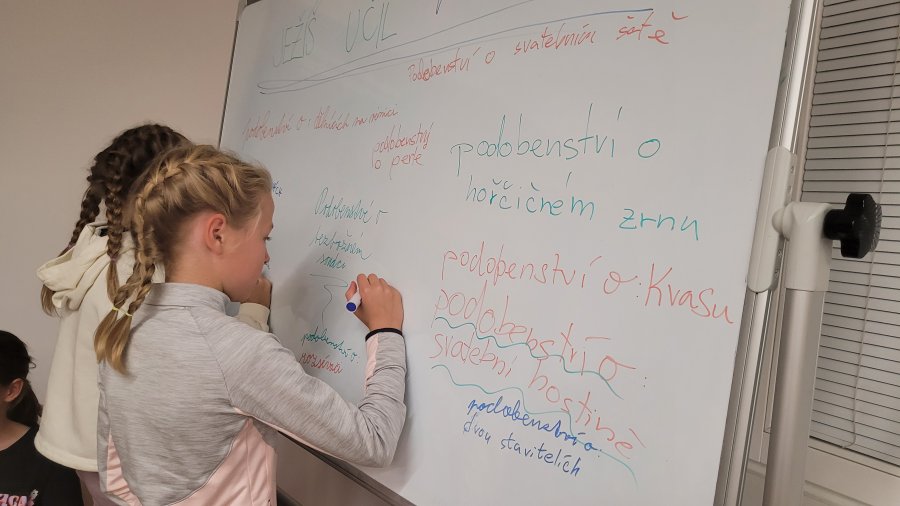 JEŽÍŠ UČIL
Podobenství o svatebním šatě
podobenství o: dělnících na vinici
podobenství
o perle
podobenství o
hořčičném zrnu
Podobenství o
bezbožném
soudci
podobenství o: Kvasu
podobenství o:
svatební hostině
podobenství o:
rozsévači
podobenství o:
dvou stavitelích